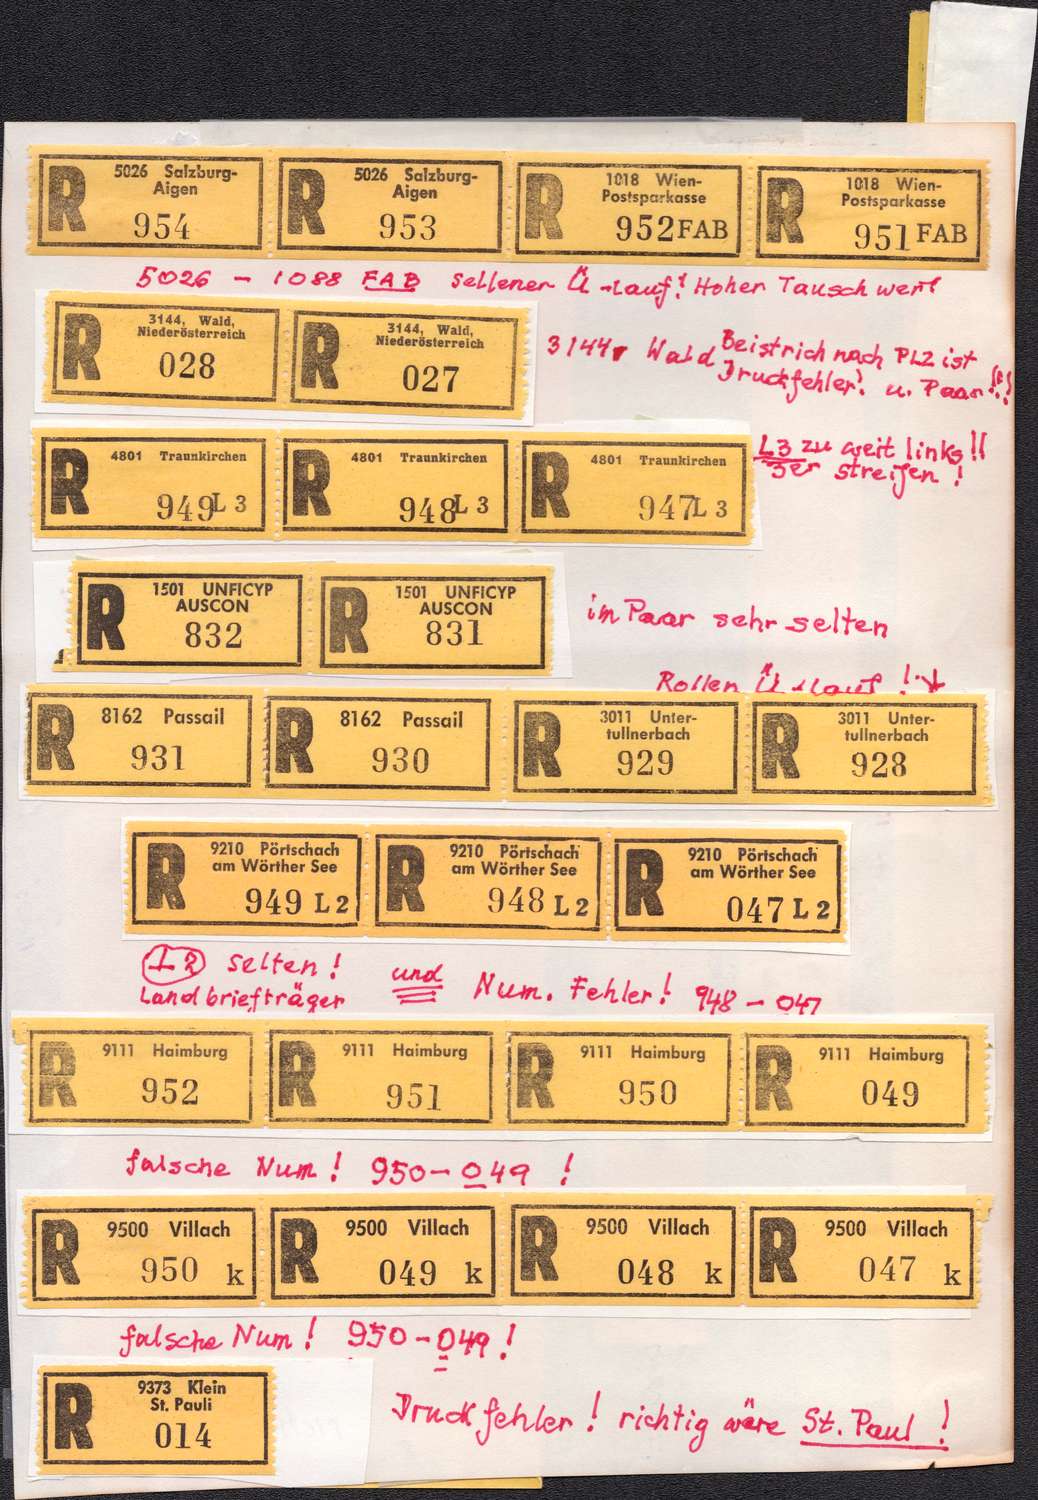 R 5026 Salzburg-
Aigen
954
R 5026 Salzburg-
Aigen
953
R 1018 Wien-
Postsparkasse
952 FAB
R 1018 Wien-
Postsparkasse
951 FAB
5026 - 1088 FAB seltener Ü-lauf! Hoher Tauschwert
R 3144, Wald,
Niederösterreich
028
R 3144, Wald,
Niederösterreich
027
3144, Wald Beistrich nach PLZ ist
Druckfehler! u. Paar!!!
R 4801 Traunkirchen
949 L 3
R 4801 Traunkirchen
948 L 3
R 4801 Traunkirchen
947 L 3
L3 zu weit links!!
3er streifen!
R 1501 UNFICYP
AUSCON
832
R 1501 UNFICYP
AUSCON
831
im Paar sehr selten
Rollen Ü-lauf!
R 8162 Passail
931
R 8162 Passail
930
R 3011 Unter-
tullnerbach
929
R 3011 Unter-
tullnerbach
928
R 9210 Pörtschach
am Wörther See
949 L 2
R 9210 Pörtschach
am Wörther See
948 L 2
R 9210 Pörtschach
am Wörther See
047 L 2
L2 selten! und Num. Fehler! 948 - 047
Landbriefträger
R 9111 Haimburg
952
R 9111 Haimburg
951
R 9111 Haimburg
950
R 9111 Haimburg
049
falsche Num! 950-049!
R 9500 Villach
950 k
R 9500 Villach
049 k
R 9500 Villach
048 k
R 9500 Villach
047 k
falsche Num! 950-049!
R 9373 Klein
St. Pauli
014
Druckfehler! richtig wäre St. Paul!